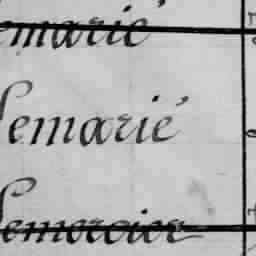 emarié
Lemarié
Lemercier